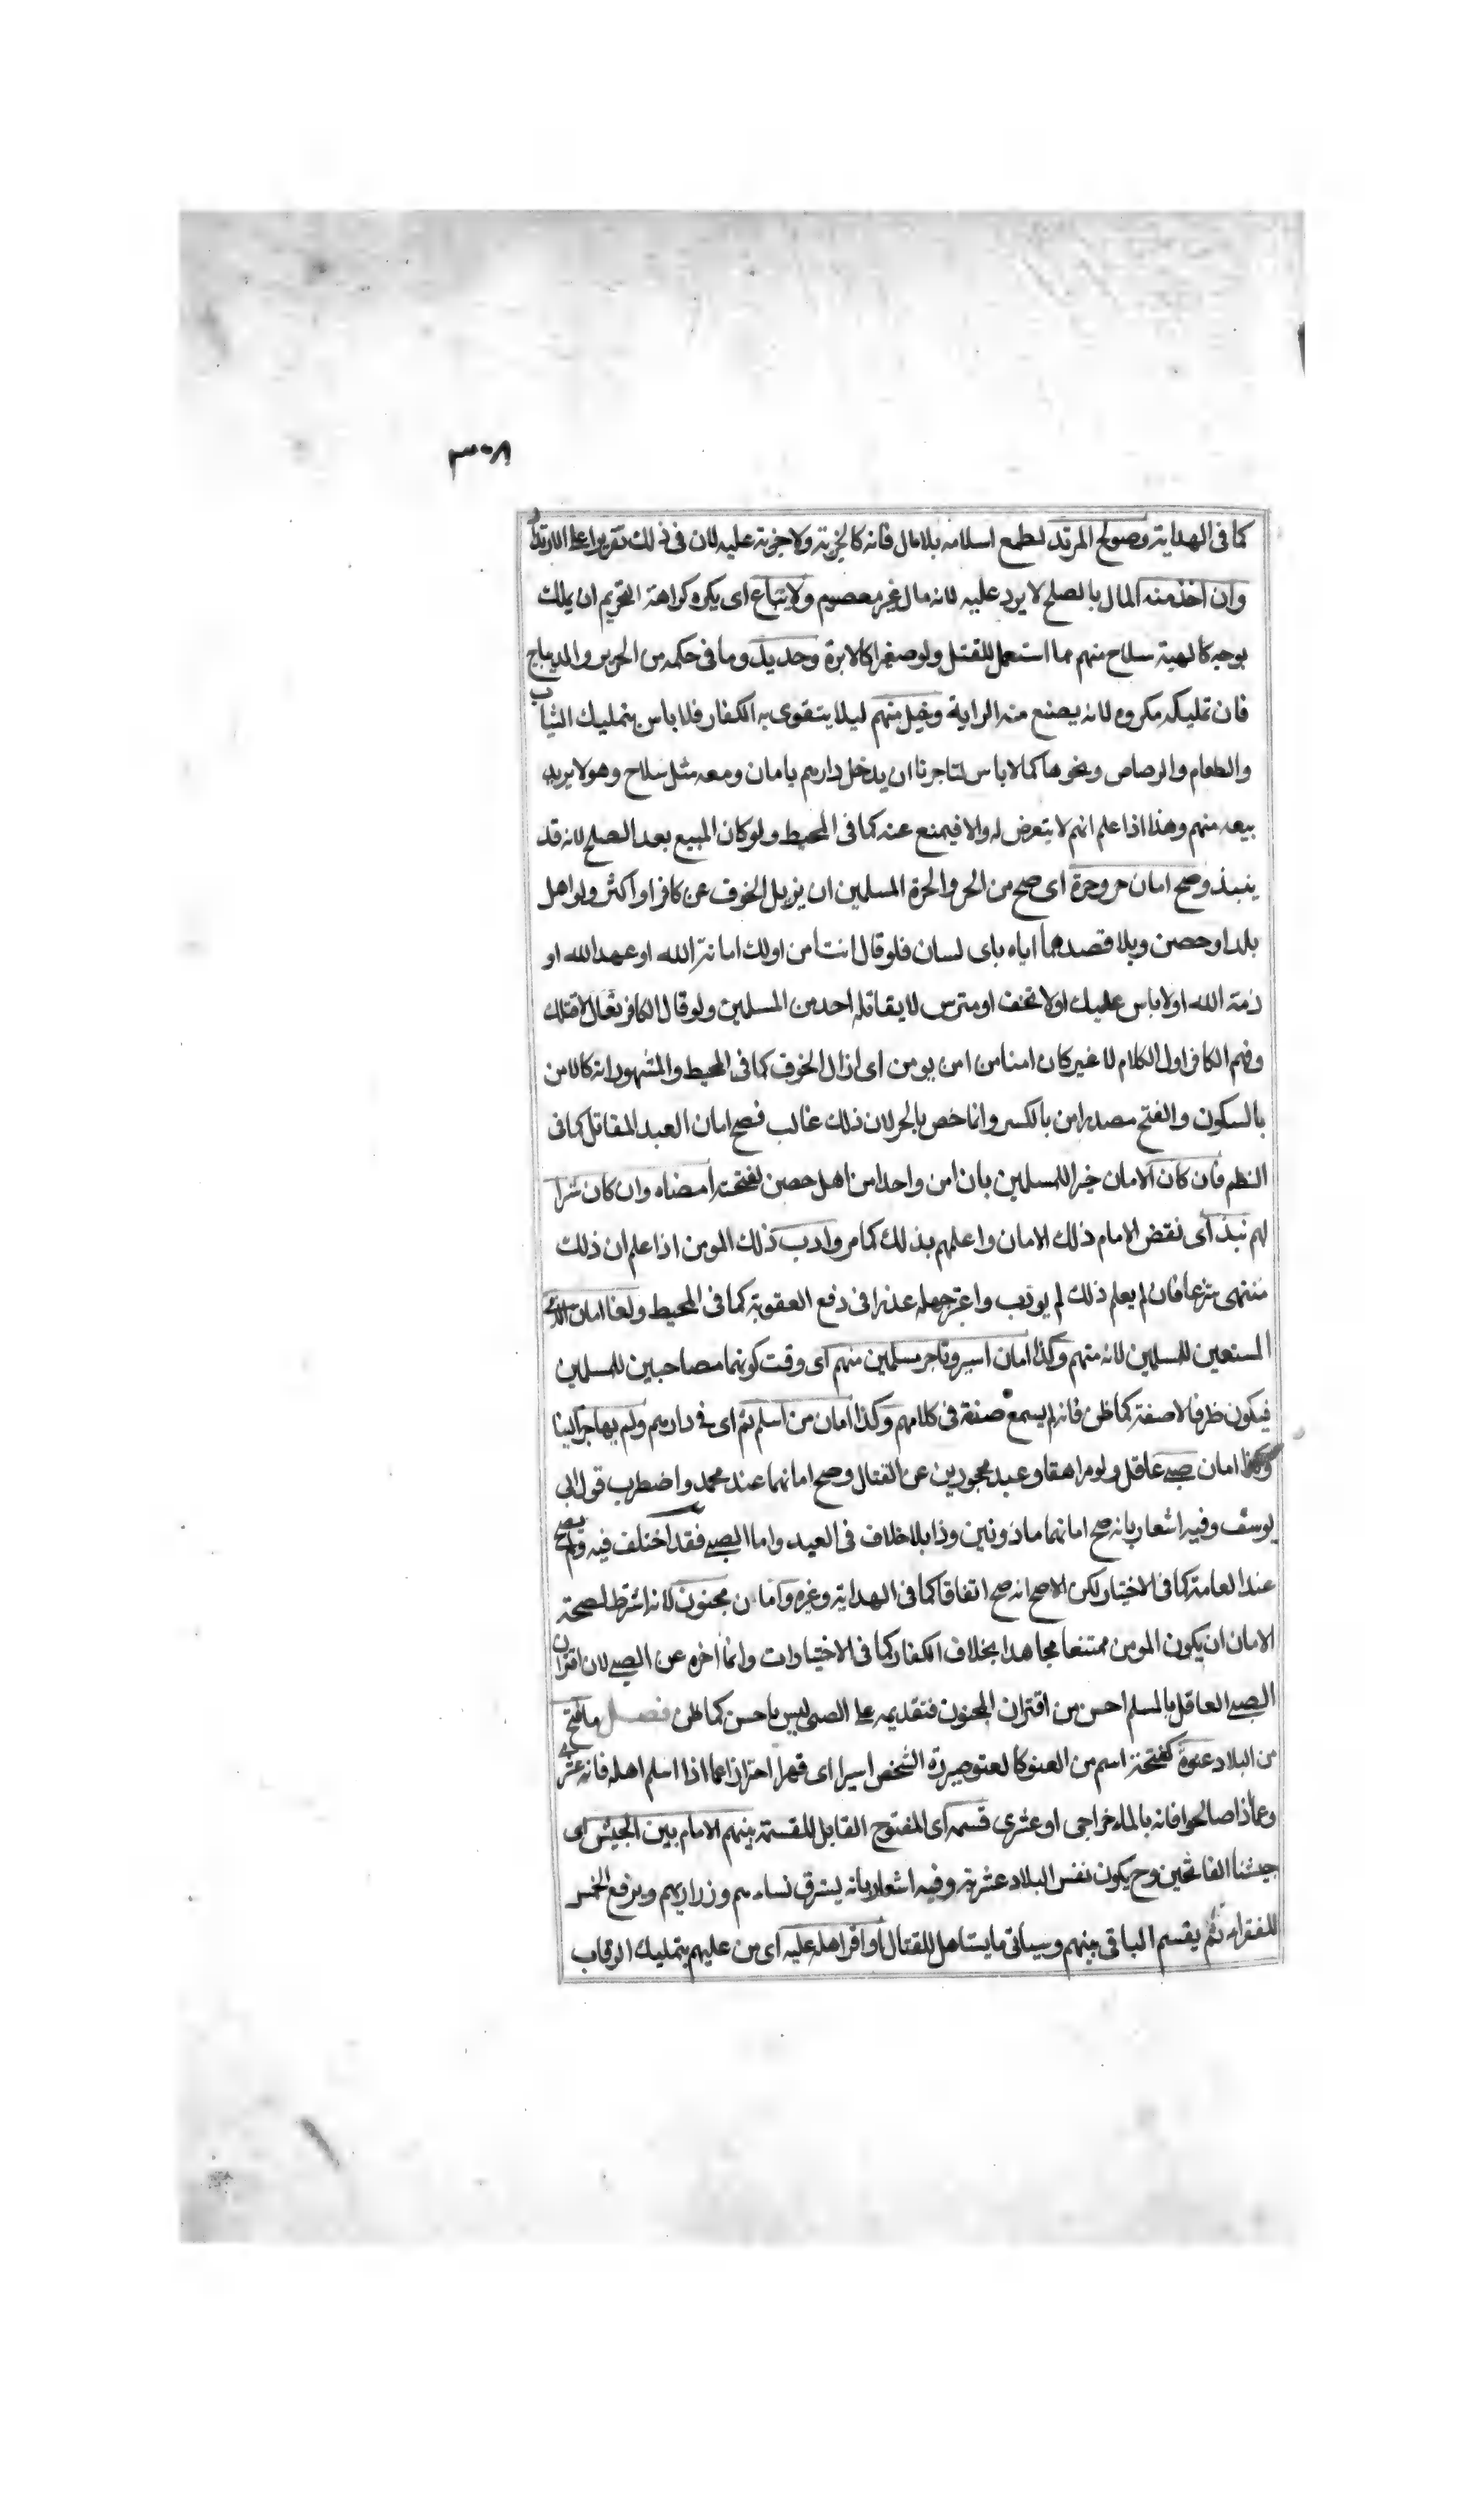 ٣٠٨
كما فى الهداية وصولح المرتد لطمع اسلامه بلا مال فانه كالجزية ولا جزية عليه لان فى ذلك تقريرا على الارتداد
وان اخذ منه المال بالصلح لا يرد عليه لانه مال غير معصوم ولا يتباع اى يكره كراهة التحريم ان يملك
بوجه كالهبة سلاح منهم مما استعمل للقتل ولو صغيرا كالابرة وحديد وما فى حكمه من الحرير والديباج
فان تمليكه مكروه لانه يصنع منه الراية وخيل منهم ليلا يتقوى به الكفار فلا باس بتمليك الثياب
والطعام والرصاص ونحوها كما لا باس لتاجرنا ان يدخل دارهم بامان ومعه مثل سلاح وهو لا يريد
بيعه منهم وهذا اذا علم انهم لا يتعرض له والا فيمنع عنه كما فى المحيط ولو كان المبيع بعد الصلح لانه قد
ينبذ وصح امان حر وحرة اى صح من الحر والحرة المسلمين ان يزيل الخوف عن كافر او اكثر ولو اهل
بلد او حصن وبلا قصدهما اياه باى لسان فلو قال انت امن او لك امانة الله او عهد الله او
ذمة الله او لا باس عليك او لا تخف او مترس لا يقاتله احد من المسلمين ولو قال الكافر تعال لاقتلك
وفهم الكافر اول الكلام لا غير كان امنا من امن يومن اى ازال الخوف كما فى المحيط والمشهور انه كالامن
بالسكون والفتح مصدر امن بالكسر وانما خص بالحر لان ذلك غالب فصح امان العبد المقاتل كما فى
النظم فان كان الامان خيرا للمسلمين بان امن واحدا من اهل حصن لفتحه امضاه وان كان شرا
لهم نبذ اى نقض الامام ذلك الامان واعلمهم بذلك كما مر وادب ذلك المومن اذا علم ان ذلك
منتهى شرعا فان لم يعلم ذلك لم يودب واعتبر جهله عذرا فى دفع العقوبة كما فى المحيط ولغا امان الذمى
المستعين للمسلمين لانه متهم وكذا امان اسير وتاجر مسلمين منهم اى وقت كونهما مصاحبين للمسلمين
فيكون ظرفا لا صفة كما ظن فانه لم يسمع صفة فى كلامهم وكذا امان من اسلم ثم اى فى دارهم ولم يهاجر الينا
وكذا امان صبى عاقل ولو مراهقا وعبد محجورين عن القتال وصح امانهما عند محمد واضطرب قول ابى
يوسف وفيه اشعار بانه صح امانهما ماذونين وذا بلا خلاف فى العبد واما الصبى فقد اختلف فيه ولم يصح
عند العامة كما فى الاختيار لكن الاصح انه صح اتفاقا كما فى الهداية وغيره وامان مجنون لانه اشترط لصحة
الامان ان يكون المومن ممتنعا مجاهدا بخلاف الكفار كما فى الاختيارات وانما اخره عن الصبى لان اقتران
الصبى العاقل بالمسلم احسن من اقتران المجنون فتقديمه على الصبى ليس باحسن كما ظن فصل ما فتح
من البلاد عنوة كفتحة اسم من العنو كالعتو صيرورة الشخص اسيرا اى قهرا احترازا عما اذا اسلم اهله فانه عشرى
وعما اذا صالحوا فانه بالماء خراجى او عشرى قسمه اى المفتوح القابل للقسمة بينهم الامام بين الجيش اى
جيشنا الفاتحين وح يكون نفس البلاد عشرية وفيه اشعار بانه يسترق نساءهم وذراريهم ويرفع الخمس
للفقراء ثم يقسم الباقى بينهم وسياتى ما يستاهل للقتال او اقر اهله عليه اى من عليهم بتمليك الرقاب